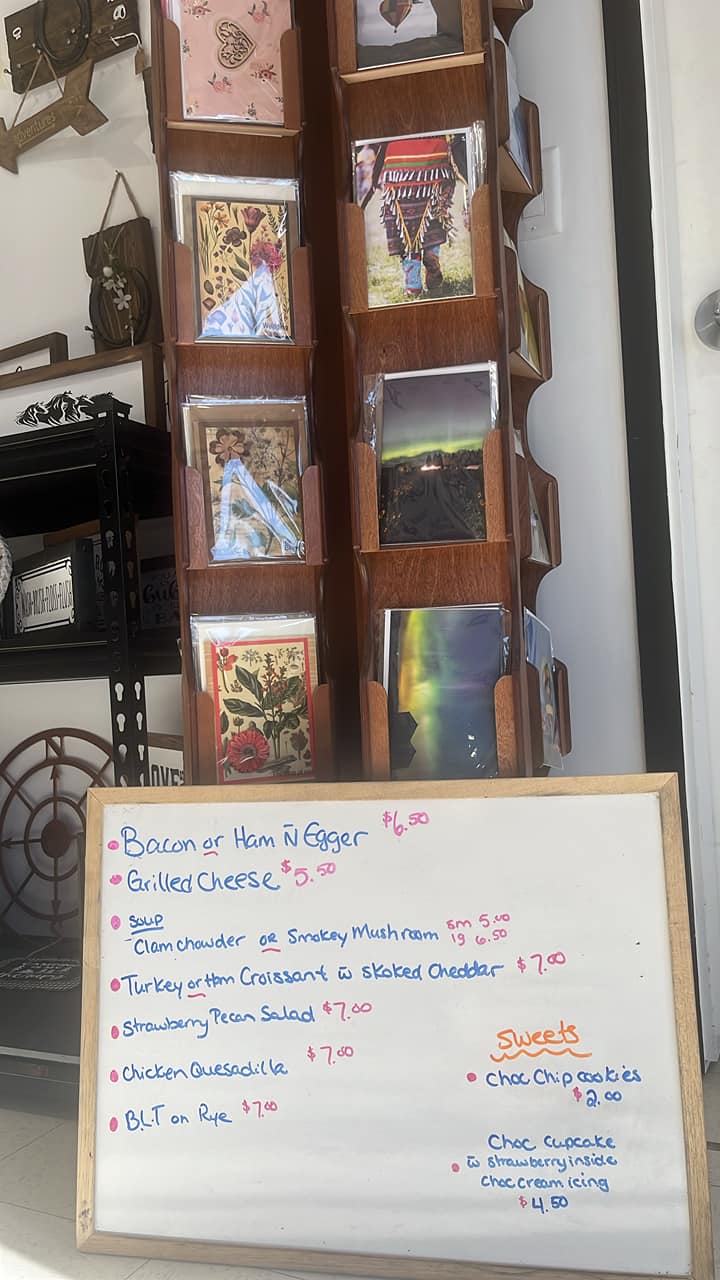 adventures
Wedding
WASH•BRUSH•FLOSS•FLUSH
N
• Bacon or Ham N̄ Egger $6.50
• Grilled Cheese $5.50
• SOUP
- Clam chowder or Smokey Mushroom sm 5.00
lg 6.50
• Turkey or Ham Croissant w̄ skoked Cheddar $7.00
• Strawberry Pecan Salad $7.00
• Chicken Quesadilla $7.00
• B.L.T on Rye $7.00
Sweets
• Choc Chip cookies
$2.00
Choc Cupcake
• w̄ strawberry inside
Choc cream icing
$4.50